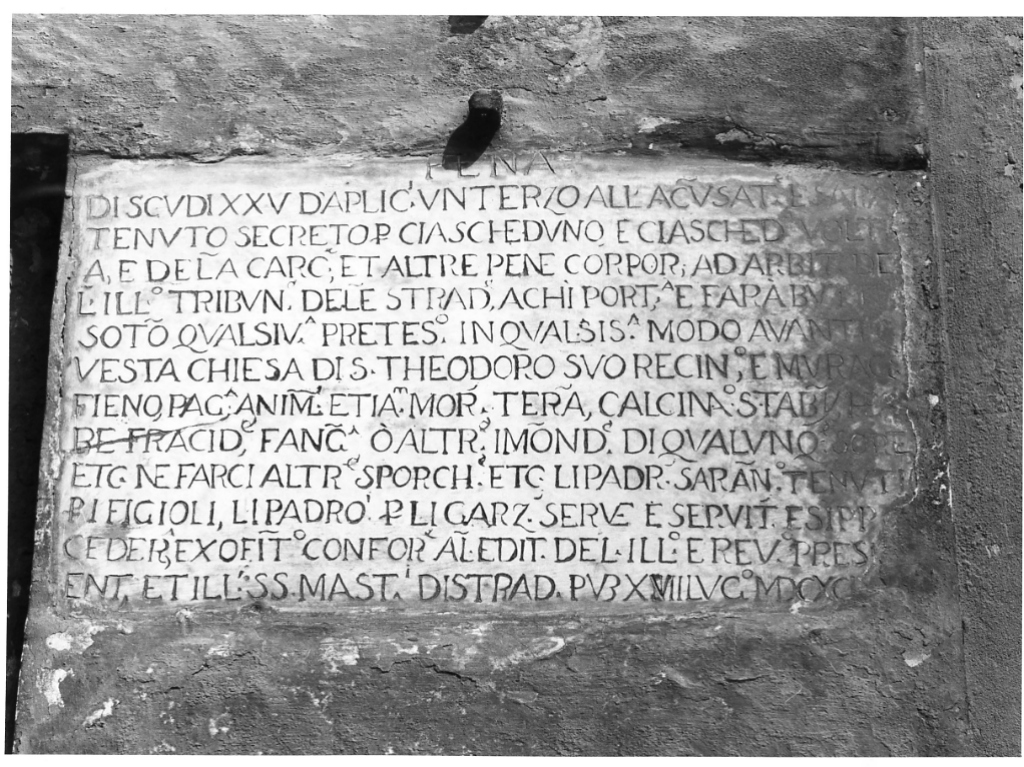 PENA
DI SCVDI XXV D'APLIC. VN TERZO ALL' ACŪSAT.
TENVTO SECRETO P CIASCHEDVNO E CIASCHED VOLT
A, E DEL̄A CARC, ET ALTRE PENE CORPOR, AD ARBIT DE
L' ILL.º TRIBVN. DELE STRAD, A CHI PORT,ᴬ E FARA BV
SOTŌ QVALSIV.ᴬ PRETES.º IN QVALSIS.ᴬ MODO AVANTI
VESTA CHIESA DI S. THEODORO SVO RECIN,º E MVRA
FIENO, PAG,ᴬ ANIM.ᴸᴵ ETIA.ᴹ MOR. TERĀ, CALCINA. STAB
RE FRACID,ᴱ FANG.ᴬ Ò ALTR.ᴱ IMŌND.ᴱ DI QVALVNQ.
ETC NE FARCI ALTR.ᴱ SPORCH.ᴱ ETC LI PADR. SARAÑ.º TENVTI
P I FIGIOLI, LI PADRO.ᴵ P LI GARZ. SERVE E SERVIT. E SI P
CEDER,ᴬ EX OFIT.º CONFOR.ᴬ AL EDIT. DEL ILL.º E REV.º PRES
ENT, ET ILL. SS. MAST.ᴵ DI STRAD. PVB XVIII LVG.º